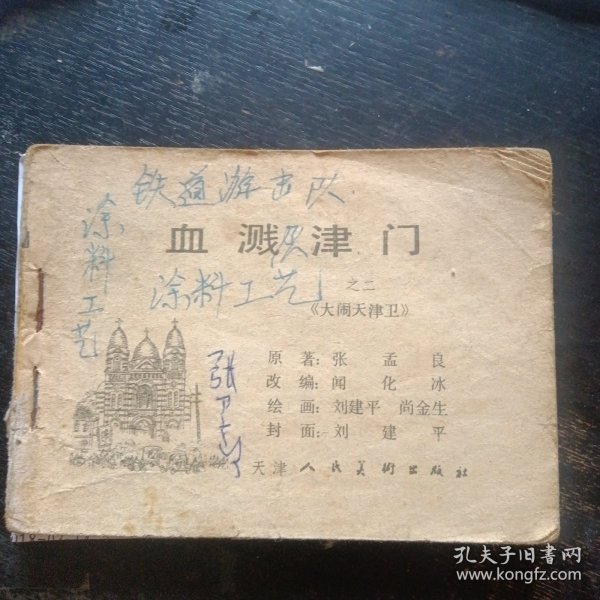 铁道游击队
涂料工艺
血溅津门
涂料工艺
之二
《大闹天津卫》
原著：张孟良
改编：闻化冰
绘画：刘建平 尚金生
封面：刘建平
张卫
天津人民美术出版社
孔夫子旧书网
www.kongfz.com